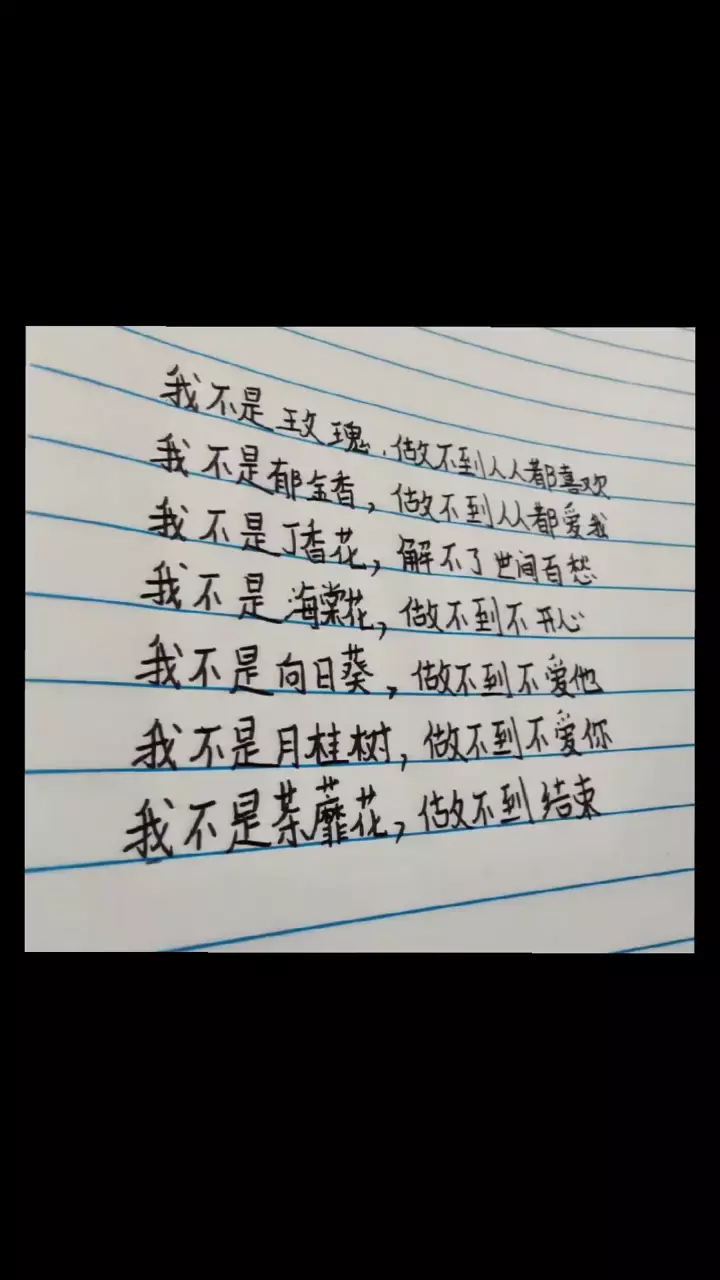 我不是玫瑰,做不到人人都喜欢
我不是郁金香,做不到人人都爱我
我不是丁香花,解不了世间百愁
我不是海棠花,做不到不开心
我不是向日葵,做不到不爱他
我不是月桂树,做不到不爱你
我不是荼蘼花,做不到结束